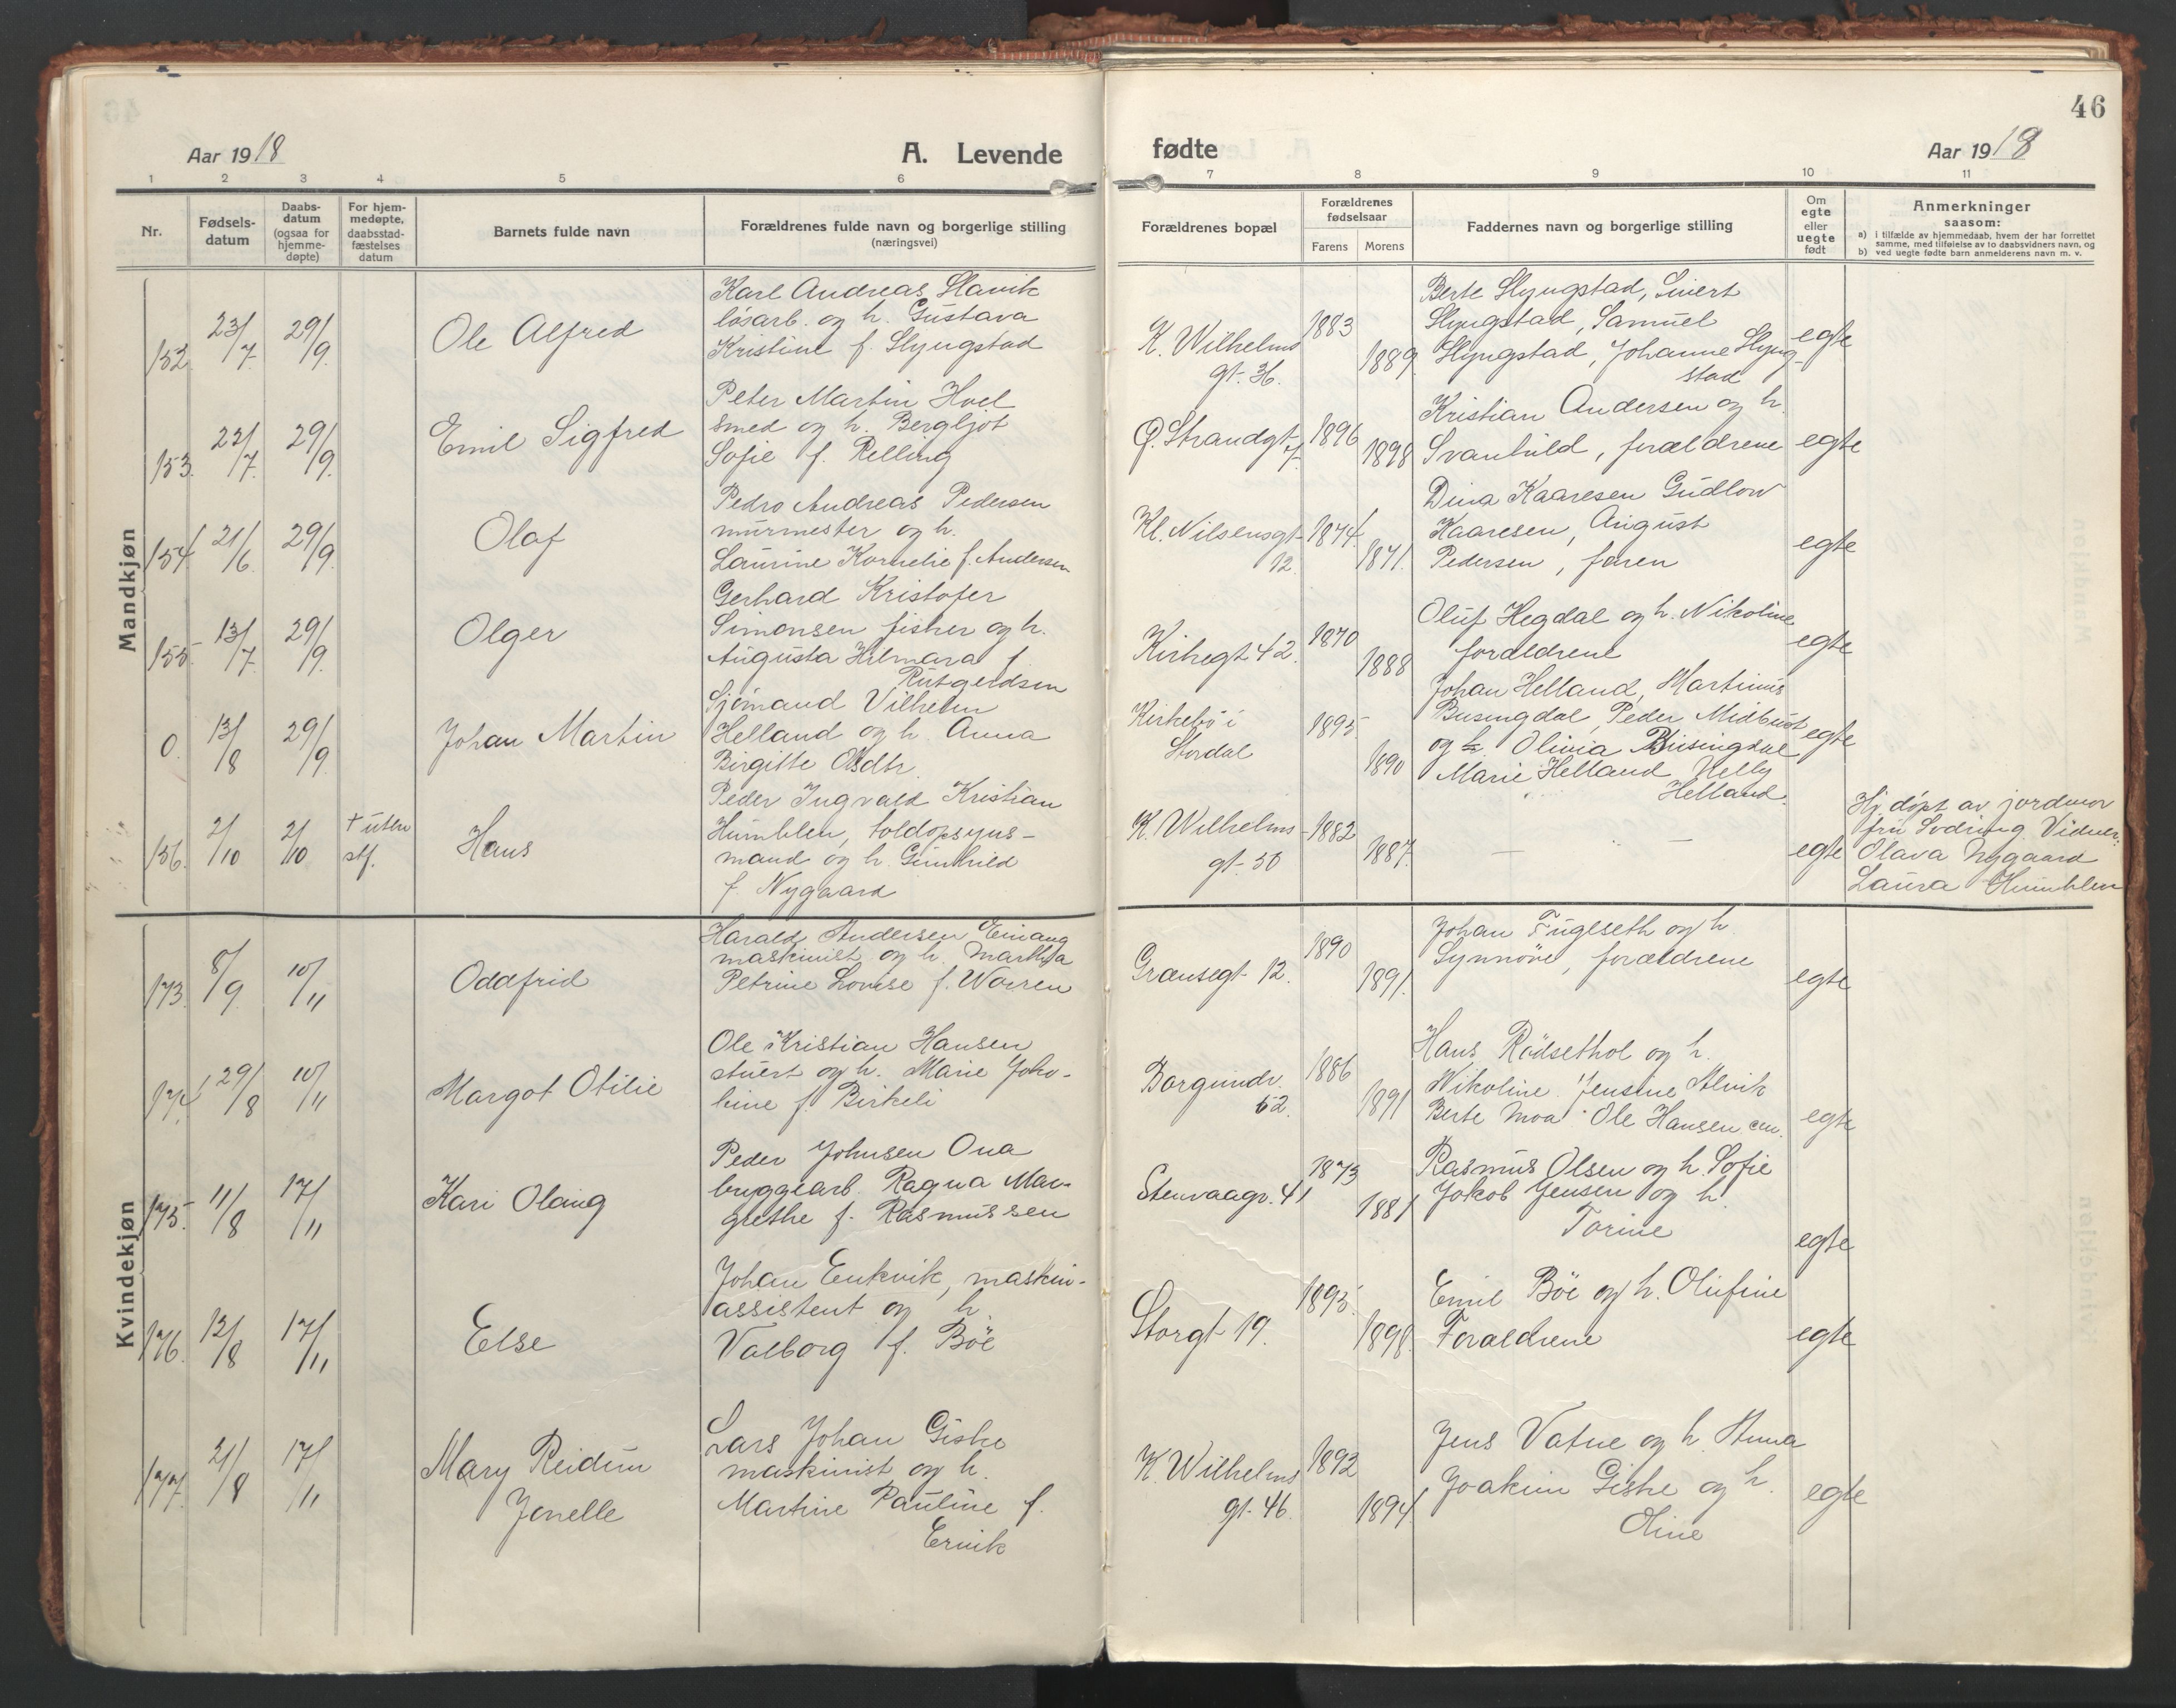 46
Aar 1918
A. Levende
fødte
Aar 1918
1 2 3 4 5 6 7 8 9 10 11
Nr.
Fødsels-
datum
Daabs-
datum
(ogsaa for
hjemme-
døpte)
For hjem-
medøpte,
daabsstad-
fæstelses
datum
Barnets fulde navn
Forældrenes fulde navn og borgerlige stilling
(næringsvei)
Forældrenes bopæl
Forældrenes
fødselsaar
Farens Morens
Faddernes navn og borgerlige stilling
Om
egte
eller
uegte
født
Anmerkninger
saasom:
a) i tilfælde av hjemmedaab, hvem der har forrettet
samme, med tilføielse av to daabsvidners navn, og
b) ved uegte fødte barn anmelderens navn m. v.
Mandkjøn
152. 23/7. 29/9. Ole Alfred
Karl Andreas Slavik
løsarb. og h. Gustava
Kristine f. Slyngstad
K. Wilhelms
gt. 36.
1883 1889.
Berte Slyngstad, Sivert
Slyngstad, Samuel
Slyngstad, Johanne Slyng-
stad
egte
153. 22/7. 29/9. Emil Sigfred
Peter Martin Hoel
smed og h. Bergljot
Sofie f. Relling
Ø. Strandgt. 7.
1896 1898
Kristian Andersen og h.
Svanhild, forældrene
egte
154. 21/6. 29/9. Olaf
Pedro Andreas Pedersen
murmester og h.
Laurine Kornelie f. Andersen
Kl. Nilsensgt.
12.
1874. 1871.
Dina Kaaresen Gudlow
Kaaresen, August
Pedersen, faren
egte
155. 13/7. 29/9. Olger
Gerhard Kristofer
Simonsen fisker og h.
Augusta Hilmara f.
Rutgerdsen
Kirkegt. 42.
1870 1888
Oluf Hegdal og h. Nikoline
forældrene
egte
0. 13/8 29/9 Johan Martin
Sjømand Vilhelm
Helland og h. Anna
Birgitte Olsdtr.
Kirkebø i
Stordal
1895 1890
Johan Helland, Martinus
Busingdal, Peder Midbust
og h. Olivia Busingdal
Marie Helland Nelly
Helland.
egte
156. 2/10 2/10 † uten
stf.
Hans
Peder Ingvald Kristian
Humblen, toldopsyns-
mand og h. Gunhild
f. Nygaard
K. Wilhelms-
gt. 50
1882 1887.
— —
egte
Hj. døpt av jordmor
fru Sodring. Vidner:
Olava Nygaard
Laura Humblen
Kvindekjøn
173. 8/9. 10/11 Oddfrid
Harald Andersen Einang
maskinist og h. Martha
Petrine Lovise f. Waren
Grænsegt. 12.
1890 1891.
Johan Fuglseth og h.
Synnöve, forældrene
egte
174. 29/8 10/11 Margot Otilie
Ole Kristian Hansen
stuert og h. Marie Jako-
bine f. Birkeli
Borgundv.
52.
1886 1891
Hans Rödsethol og h.
Nikoline. Jensine Alvik
Berte Moa. Ole Hansen sen.
egte
175. 11/8 17/11 Kari Olaug
Peder Johnsen Ona
bryggearb. Ragna Mar-
grethe f. Rasmussen
Stenvaagv. 41
1873 1881
Rasmus Olsen og h. Sofie
Jakob Jensen og h.
Torine
egte
176. 12/8 17/11 Else
Johan Enkvik, maskin-
assistent og h.
Valborg f. Böe
Storgt. 19.
1895. 1898.
Emil Böe og h. Olufine
Forældrene
egte
177. 21/8 17/11 Mary Reidun
Jonelle
Lars Johan Giske
maskinist og h.
Martine Pauline f.
Ervik
K. Wilhelms
gt. 46.
1892 1894.
Jens Vatne og h. Anna
Joakim Giske og h.
Oline
egte